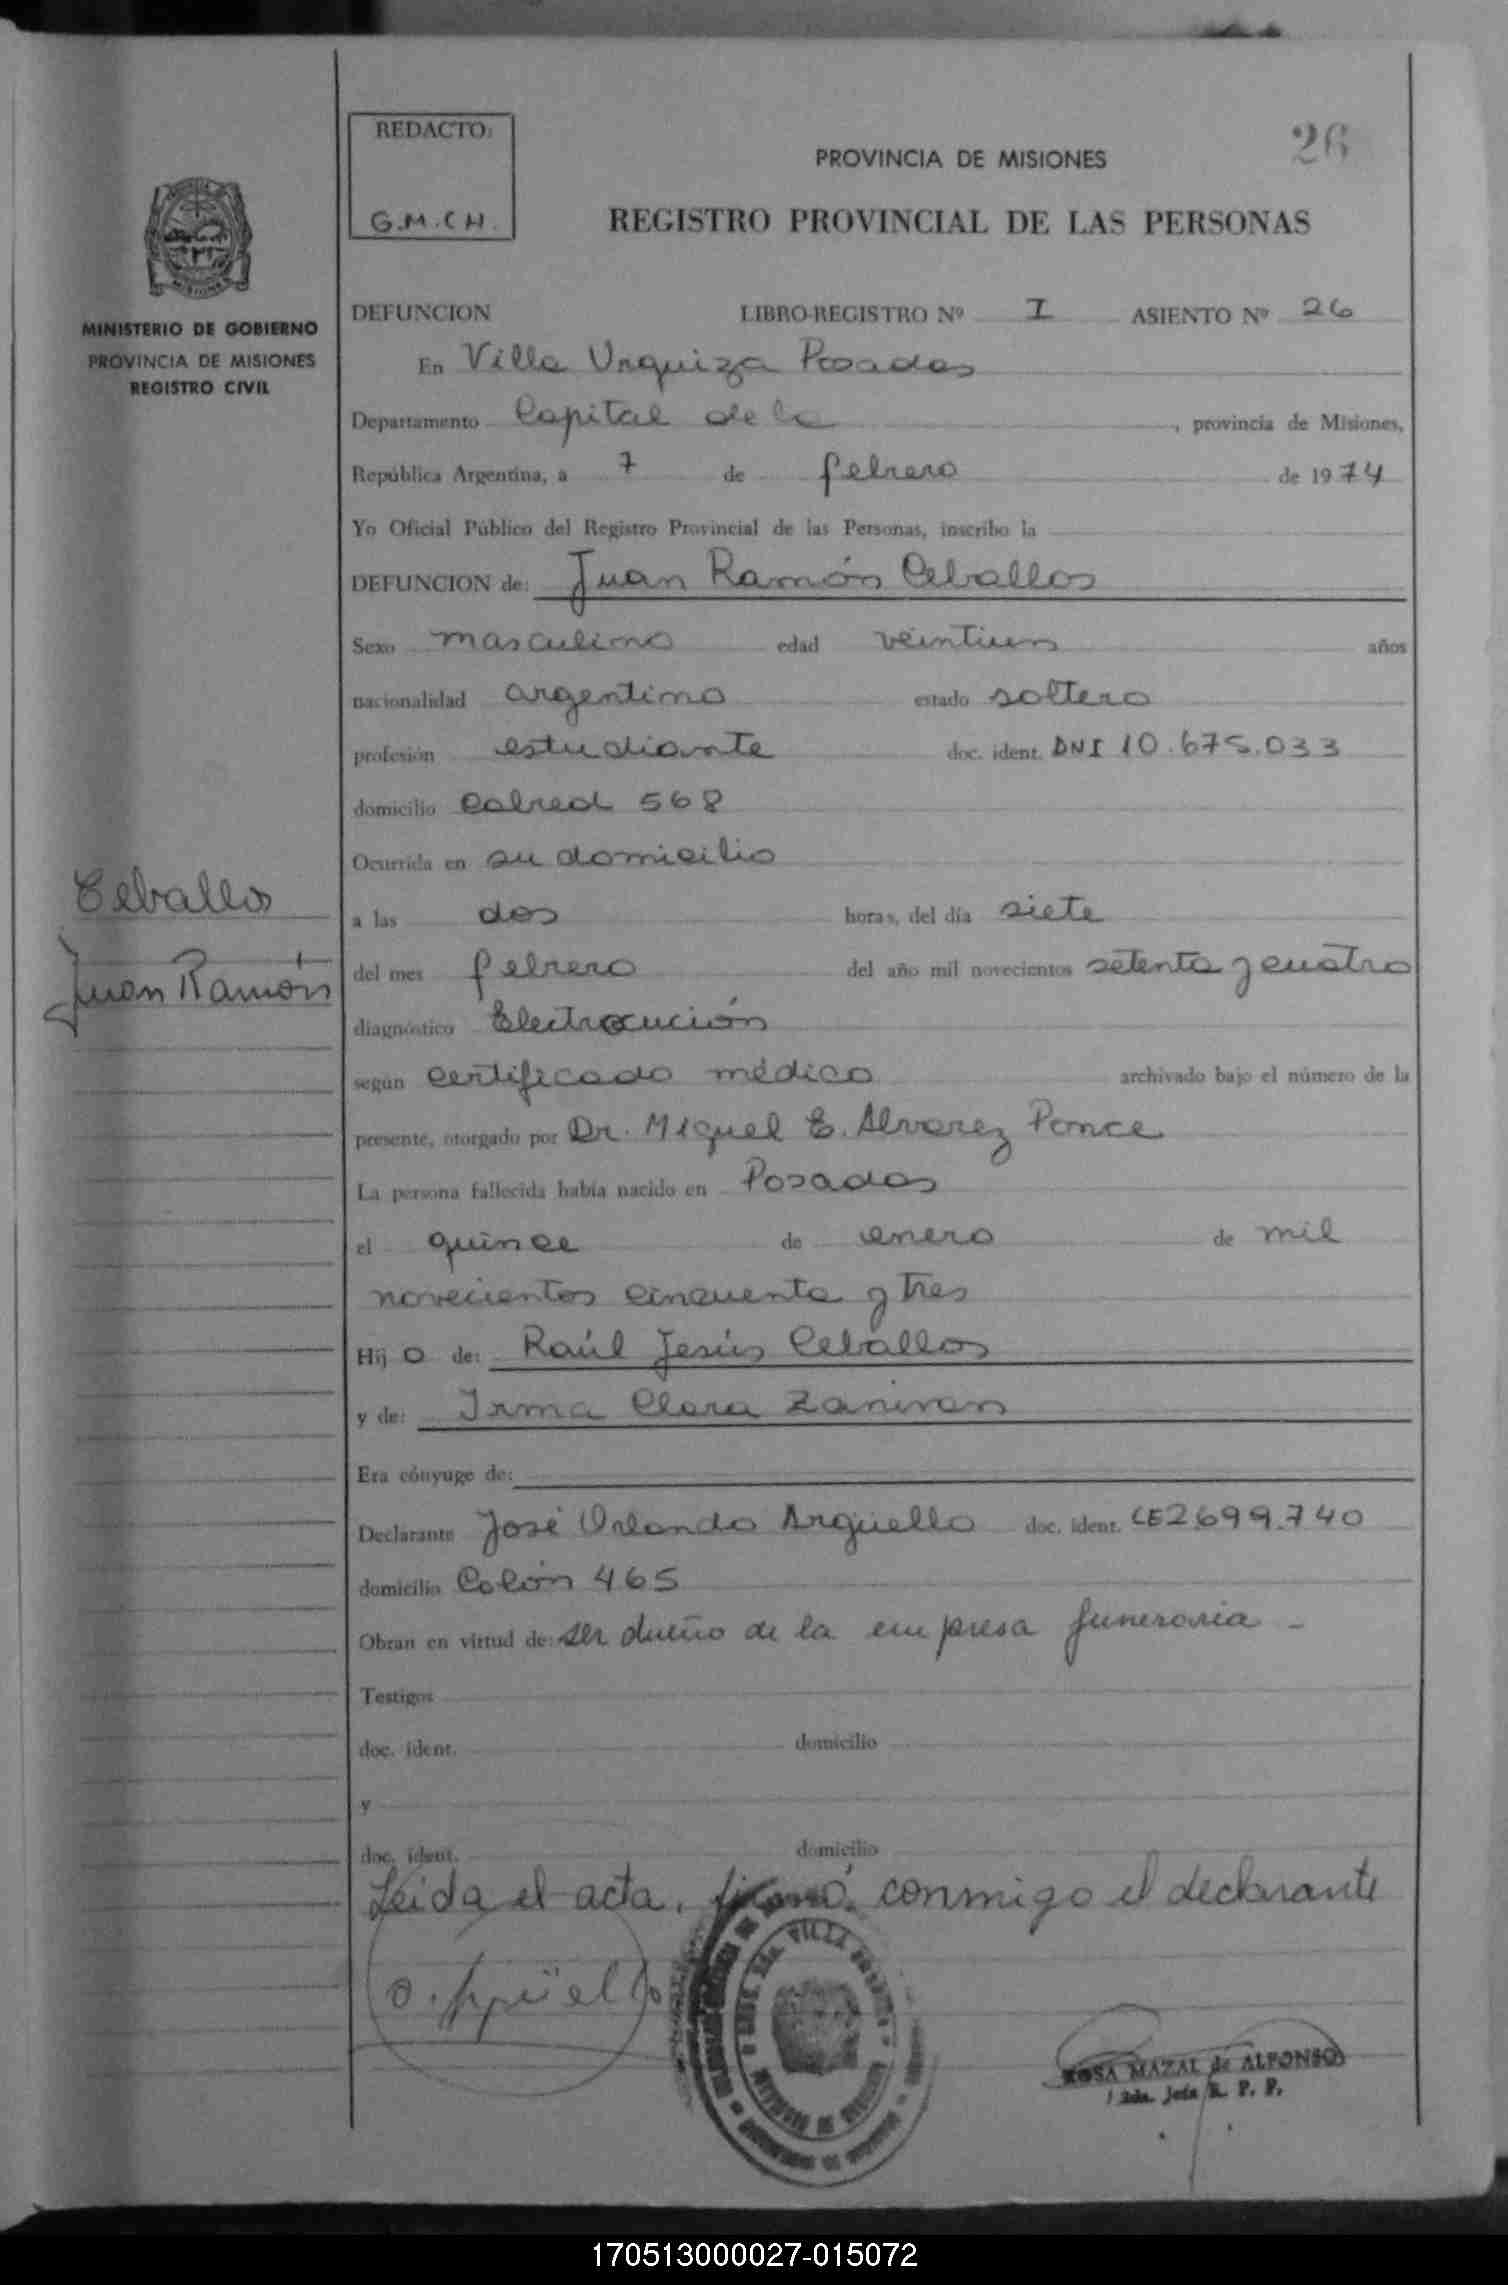 REDACTO:
G.M.CH.
26
PROVINCIA DE MISIONES
REGISTRO PROVINCIAL DE LAS PERSONAS
MINISTERIO DE GOBIERNO
PROVINCIA DE MISIONES
REGISTRO CIVIL
DEFUNCION LIBRO-REGISTRO Nº I ASIENTO Nº 26
En Villa Urquiza Posadas
Departamento Capital de la , provincia de Misiones,
República Argentina, a 7 de febrero de 1974
Yo Oficial Público del Registro Provincial de las Personas, inscribo la
DEFUNCION de: Juan Ramón Ceballos
Sexo masculino edad veintiun años
nacionalidad argentino estado soltero
profesión estudiante doc. ident. DNI 10.675.033
domicilio Cabred 568
Ocurrida en su domicilio
Ceballos
Juan Ramón
a las dos horas, del día siete
del mes febrero del año mil novecientos setenta y cuatro
diagnóstico Electrocución
según certificado médico archivado bajo el número de la
presente, otorgado por Dr. Miguel E. Alvarez Ponce
La persona fallecida había nacido en Posadas
el quince de enero de mil
novecientos cincuenta y tres
Hij o de: Raúl Jesús Ceballos
y de: Irma Clara
Era cónyuge de:
Declarante José Orlando Argüello doc. ident. CE2699.740
domicilio Colón 465
Obran en virtud de: ser dueño de la empresa funeraria -
Testigos
doc. ident. domicilio
y
doc. ident. domicilio
Leida el acta, firmó conmigo el declarante
O. Argüello
VILLA
ROSA MAZAL de ALFONSO
Jefa R. P. P.
170513000027-015072